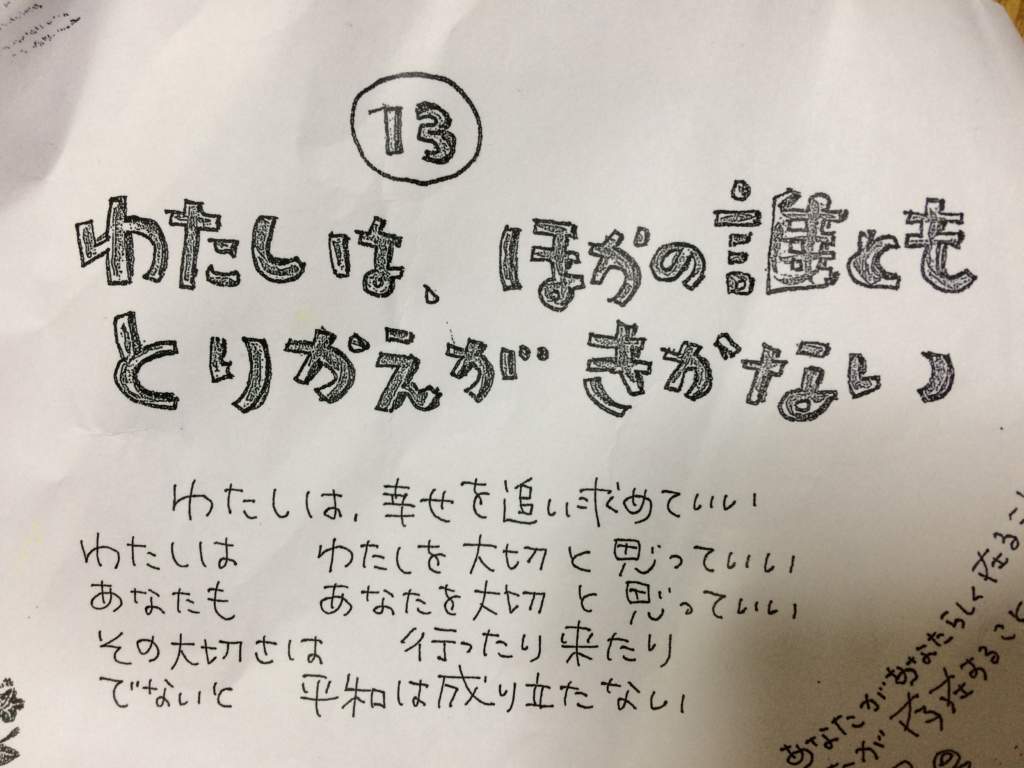 13
わたしは、ほかの誰とも
とりかえがきかない
わたしは、幸せを追い求めていい
わたしは わたしを大切と思っていい
あなたも あなたを大切と思っていい
その大切さは 行ったり来たり
でないと 平和は成り立たない
あなたがあなたらしく在るこ
たが存在すること